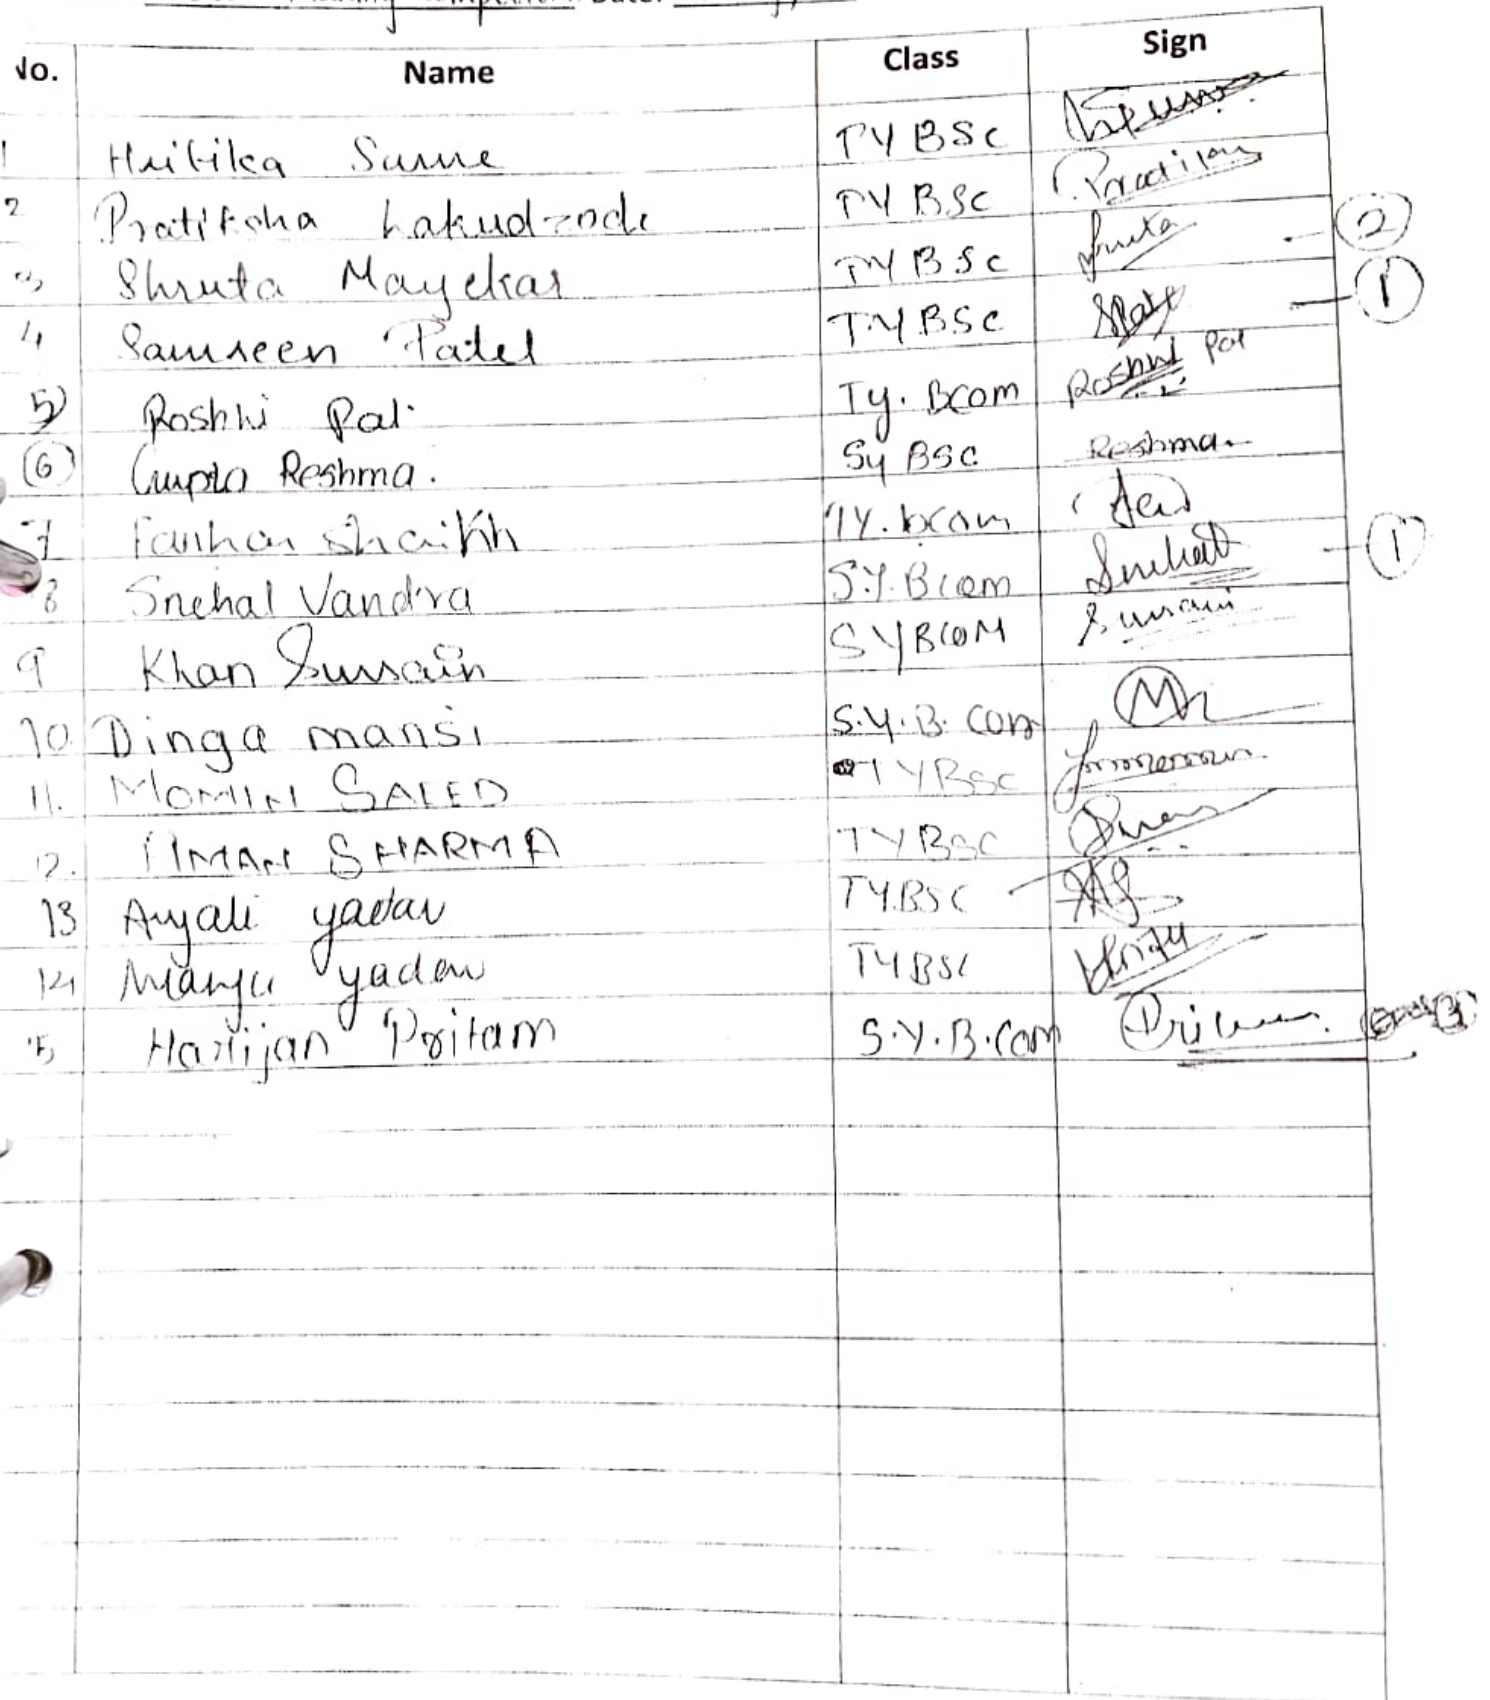 Date:
No. Name Class Sign
1 Hritika Surve TYBSc
2 Pratiksha Lakudzode TYBSc
3 Shruta Mayekar TYBSc Shruta 2
4 Samreen Patel TYBSc 1
5) Roshni Pal Ty. Bcom Roshni Pal
6 Gupta Reshma. Sy BSC Reshma
7 Farhan Shaikh TY. bcom
8 Snehal Vandra S.Y.Bcom Snehal 1
9 Khan Sumain SYBCOM Sumain
10 Dinga mansi S.Y.B. Com
11. MOMIN SAEED TYBSC
12. SHARMA TYBSC
13 Anjali yadav TY.BSC
14 Manju yadav TYBSC
15 Harijan Pritam S.Y.B.Com